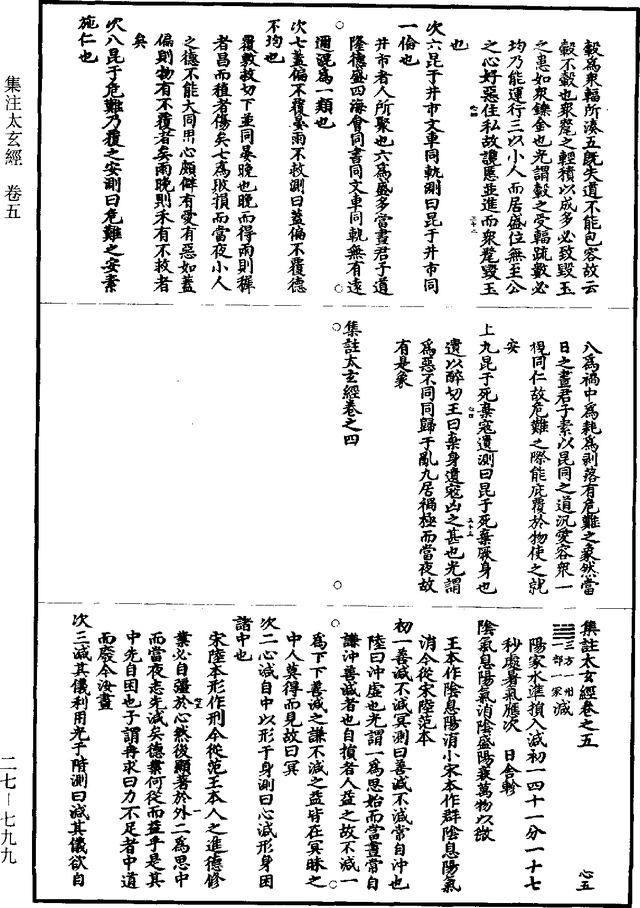 集注太玄經 卷五
轂爲衆輻所湊五既失道不能包容故云
轂不轂也衆蹇之輕積以成多必致毀玉
之患如衆鑠金也光謂轂之受輻疏數必
均乃能運行三以小人而居盛位無至公
之心好惡任私故讒慝並進而衆蹇毀玉
也
次六昆于井市文車同軌測曰昆于井市同
一倫也
井市者人所聚也六爲盛多當晝君子道
隆德盛四海會同書同文車同軌無有遠
邇混爲一類也
次七蓋偏不覆晏雨不救測曰蓋偏不覆德
不均也
覆敷救切下並同晏晚也晚而得雨則穉
者昌而植者傷矣七爲敗損而當夜小人
之德不能大同用心頗僻有愛有惡如蓋
偏則物有不覆者矣雨晚則禾有不救者
矣
次八昆于危難乃覆之安測曰危難之安素
施仁也
八爲禍中爲耗爲剥落有危難之象然當
日之晝君子素以昆同之道汎愛容衆一
視同仁故危難之際能庇覆於物使之就
安
上九昆于死棄寇遺測曰昆于死棄厥身也
遺以醉切王曰棄身遺寇凶之甚也光謂
爲惡不同同歸于亂九居禍極而當夜故
有是象
集註太玄經卷之四
集註太玄經卷之五
三方一州
一部一家
減
陽家水準損入減初一四十一分一十七
秒處暑氣應次 日舍軫
陰氣息陽氣消陰盛陽衰萬物以微
王本作陰息陽消小宋本作群陰息陽氣
消今從宋陸范本
初一善減不減冥測曰善減不減常自沖也
陸曰沖虛也光謂一爲思始而當晝常自
謙沖善減者也自損者人益之故不減一
爲下下善減之謙不減之益皆在冥昧之
中人莫得而見故曰冥
次二心減自中以形于身測曰心減形身困
諸中也
宋陸本形作刑今從范王本人之進德修
業必自彊於心然後顯著於外二爲思中
而當夜志先減矣德業何從而益乎是其
中先自困也子謂冉求曰力不足者中道
而廢今汝畫
次三減其儀利用光于階測曰減其儀欲自
心五
二七－七九九